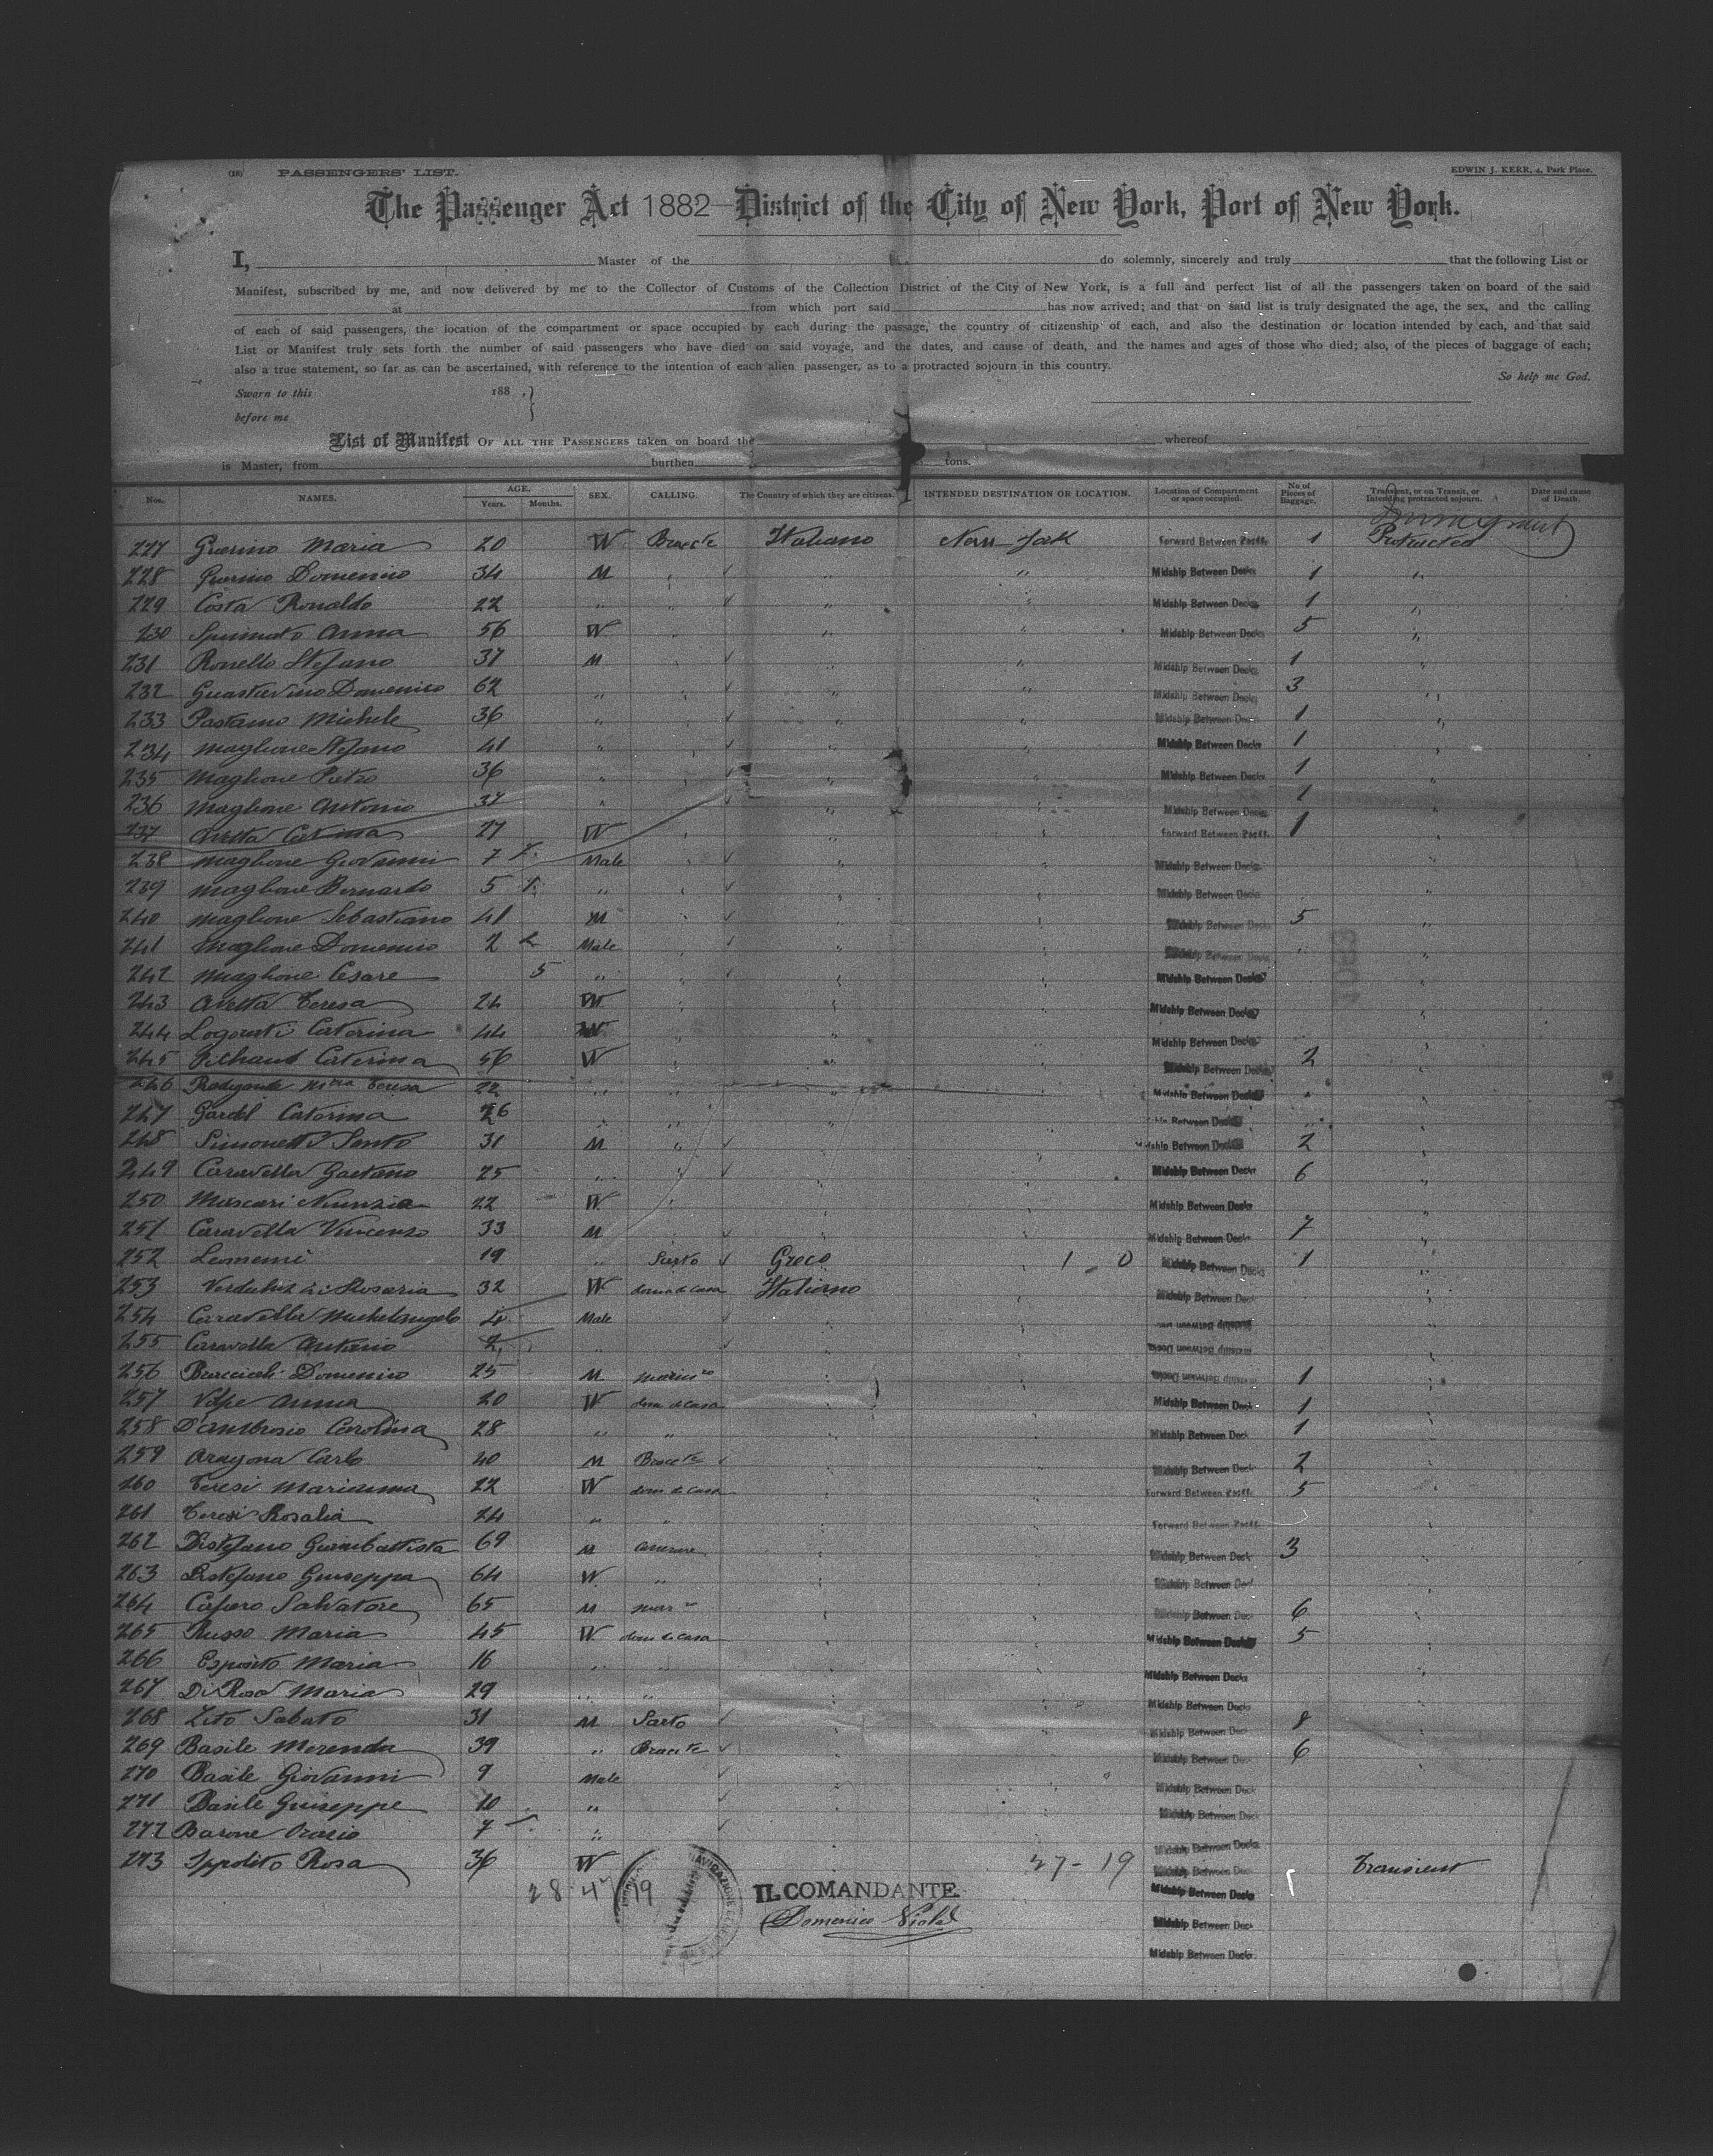 (18) PASSENGERS' LIST. EDWIN J. KERR, 4, Park Place.
The Passenger Act 1882—District of the City of New York, Port of New York.
I, Master of the do solemnly, sincerely and truly that the following List or
Manifest, subscribed by me, and now delivered by me to the Collector of Customs of the Collection District of the City of New York, is a full and perfect list of all the passengers taken on board of the said
at from which port said has now arrived; and that on said list is truly designated the age, the sex, and the calling
of each of said passengers, the location of the compartment or space occupied by each during the passage, the country of citizenship of each, and also the destination or location intended by each, and that said
List or Manifest truly sets forth the number of said passengers who have died on said voyage, and the dates, and cause of death, and the names and ages of those who died; also, of the pieces of baggage of each;
also a true statement, so far as can be ascertained, with reference to the intention of each alien passenger, as to a protracted sojourn in this country.
So help me God.
Sworn to this 188 ,
before me
List of Manifest OF ALL THE PASSENGERS taken on board the whereof
is Master, from burthen tons.
Nos. NAMES. AGE. Years. Months. SEX. CALLING. The Country of which they are citizens. INTENDED DESTINATION OR LOCATION. Location of Compartment or space occupied. No of Pieces of Baggage. Transient, or on Transit, or Intending protracted sojourn. Date and cause of Death.
227 Guerino Maria 20 W Braccte Italiano New York Forward Between 1 Protracted
228 Guerino Domenico 34 M " " " Midship Between Decks 1 "
229 Costa Ronaldo 22 " " " " Midship Between Decks 1 "
230 Spinnato Anna 56 W " " " Midship Between Decks 5 "
231 Ronello Stefano 37 M " " " Midship Between Decks 1 "
232 Guastavino Domenico 62 " " " " Midship Between Decks 3 "
233 Pastamo Michele 36 " " " " Midship Between Decks 1 "
234 Maglione Stefano 41 " " " " Midship Between Decks 1 "
235 Maglione Pietro 36 " " " " Midship Between Decks 1 "
236 Maglione Antonio 37 " " " " Midship Between Decks 1 "
237 Avetta Caterina 27 W " " " Forward Between 1
238 Maglione Giovanni 7 Male " " " Midship Between Decks
239 Maglione Bernardo 5 " " " " Midship Between Decks "
240 Maglione Sebastiano 41 M " " " Midship Between Decks 5 "
241 Maglione Domenico 2 Male " " " Midship Between Decks " "
242 Maglione Cesare 5 " " " " Midship Between Decks "
243 Avetta Teresa 24 W " " " Midship Between Decks "
244 Caterina 44 W " " " Midship Between Decks "
245 Caterina 56 W " " " Midship Between Decks 2 "
246 Teresa 22 " " " Midship Between Decks " "
247 Gardel Caterina 26 " " " " Between Decks " "
248 Simonetti Santo 31 M " " " Midship Between Decks 2 "
249 Caravella Gaetano 25 " " " " Midship Between Decks 6 "
250 Mascari Nunzia 22 W " " " Midship Between Decks "
251 Caravella Vincenzo 33 M " " " Midship Between Decks 7 "
252 Leomemi 19 " Sarto Greco 1 0 Midship Between Decks 1 "
253 Rosaria 32 W dona di casa Italiano " Midship Between Decks "
254 Carravella Michelangelo 4 Male " " Midship Between Decks "
255 Caravella Antonio 2 " " " Midship Between Decks "
256 Domenico 25 M marinro " " Midship Between Decks 1 "
257 Volpe Anna 20 W dona di casa " " Midship Between Decks 1 "
258 D'Ambrosio Carolina 28 " " " " Midship Between Decks 1 "
259 Aragona Carlo 40 M Braccte " " Midship Between Decks 2 "
260 Teresi Marianna 22 W dona di casa " " Forward Between 5 "
261 Teresi Rosalia 24 " " " " Forward Between "
262 Distefano Giambattista 69 M " " Midship Between Decks 3 "
263 Distefano Giuseppa 64 W " " " Midship Between Decks "
264 Cafiero Salvatore 65 M marro " " Midship Between Decks 6 "
265 Russo Maria 45 W dona di casa " " Midship Between Decks 5 "
266 Esposito Maria 16 " " " " Midship Between Decks "
267 Di Rosa Maria 29 " " " " Midship Between Decks "
268 Zito Sabato 31 M Sarto " " Midship Between Decks 8 "
269 Basile Merenda 39 " Braccte " " Midship Between Decks 6 "
270 Basile Giovanni 9 Male " Midship Between Decks
271 Basile Giuseppe 10 " " Midship Between Decks
272 Barone Orazio 7 " Midship Between Decks
273 Ippolito Rosa 36 W 27-19 Midship Between Decks Transient
28 47 19 IL COMANDANTE Midship Between Decks 1
Domenico Midship Between Decks
Midship Between Decks